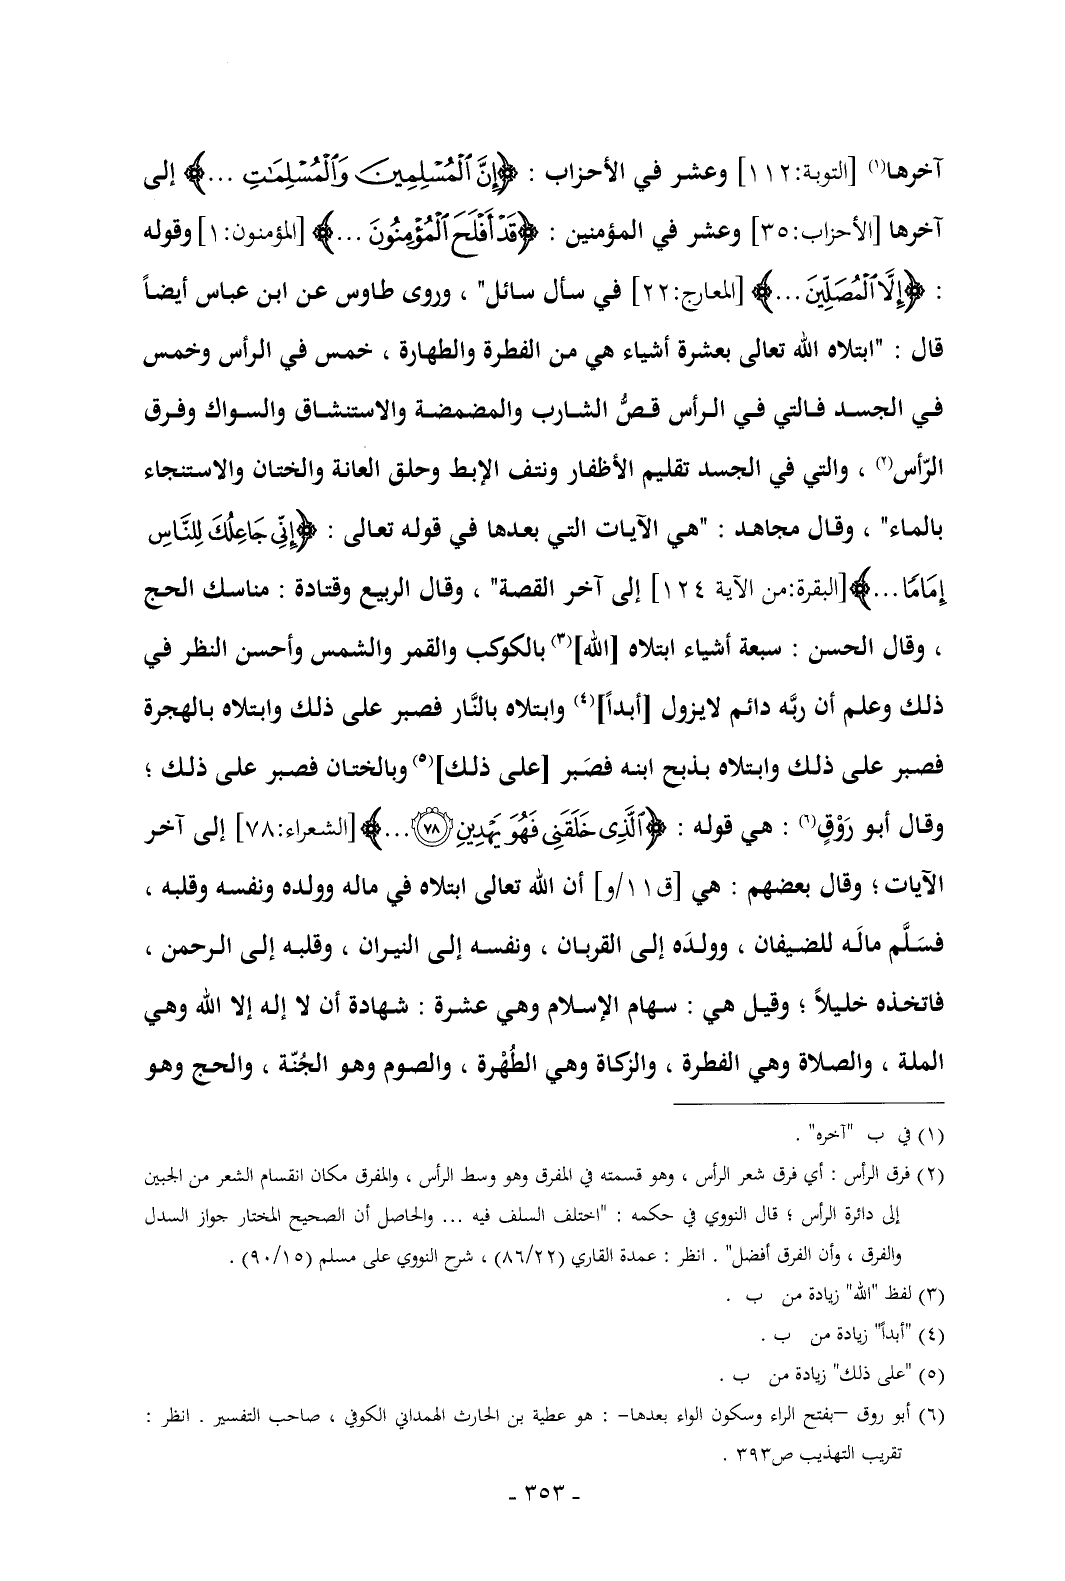 آخرها(١) [التوبة:١١٢] وعشر في الأحزاب : ﴿إِنَّ ٱلْمُسْلِمِينَ وَٱلْمُسْلِمَٰتِ ...﴾ إلى
آخرها [الأحزاب:٣٥] وعشر في المؤمنين : ﴿قَدْ أَفْلَحَ ٱلْمُؤْمِنُونَ ...﴾ [المؤمنون:١] وقوله
: ﴿إِلَّا ٱلْمُصَلِّينَ ...﴾ [المعارج:٢٢] في سأل سائل" ، وروى طاوس عن ابن عباس أيضاً
قال : "ابتلاه الله تعالى بعشرة أشياء هي من الفطرة والطهارة ، خمس في الرأس وخمس
في الجسد فالتي في الرأس قصُّ الشارب والمضمضة والاستنشاق والسواك وفرق
الرّأس(٢) ، والتي في الجسد تقليم الأظفار ونتف الإبط وحلق العانة والختان والاستنجاء
بالماء" ، وقال مجاهد : "هي الآيات التي بعدها في قوله تعالى : ﴿إِنِّى جَاعِلُكَ لِلنَّاسِ
إِمَامًا ...﴾[البقرة:من الآية ١٢٤] إلى آخر القصة" ، وقال الربيع وقتادة : مناسك الحج
، وقال الحسن : سبعة أشياء ابتلاه [الله](٣) بالكوكب والقمر والشمس وأحسن النظر في
ذلك وعلم أن ربَّه دائم لايزول [أبداً](٤) وابتلاه بالنَّار فصبر على ذلك وابتلاه بالهجرة
فصبر على ذلك وابتلاه بذبح ابنه فصَبر [على ذلك](٥) وبالختان فصبر على ذلك ؛
وقال أبو رَوْقٍ(٦) : هي قوله : ﴿ٱلَّذِى خَلَقَنِى فَهُوَ يَهْدِينِ ٧٨ ...﴾[الشعراء:٧٨] إلى آخر
الآيات ؛ وقال بعضهم : هي [ق١١/و] أن الله تعالى ابتلاه في ماله وولده ونفسه وقلبه ،
فسَلَّم مالَه للضيفان ، وولدَه إلى القربان ، ونفسه إلى النيران ، وقلبه إلى الرحمن ،
فاتخذه خليلاً ؛ وقيل هي : سهام الإسلام وهي عشرة : شهادة أن لا إله إلا الله وهي
الملة ، والصلاة وهي الفطرة ، والزكاة وهي الطُهْرة ، والصوم وهو الجُنّة ، والحج وهو
(١) في ب "آخره" .
(٢) فرق الرأس : أي فرق شعر الرأس ، وهو قسمته في المفرق وهو وسط الرأس ، والمفرق مكان انقسام الشعر من الجبين
إلى دائرة الرأس ؛ قال النووي في حكمه : "اختلف السلف فيه ... والحاصل أن الصحيح المختار جواز السدل
والفرق ، وأن الفرق أفضل" . انظر : عمدة القاري (٨٦/٢٢) ، شرح النووي على مسلم (٩٠/١٥) .
(٣) لفظ "الله" زيادة من ب .
(٤) "أبداً" زيادة من ب .
(٥) "على ذلك" زيادة من ب .
(٦) أبو روق –بفتح الراء وسكون الواء بعدها– : هو عطية بن الحارث الهمداني الكوفي ، صاحب التفسير . انظر :
تقريب التهذيب ص٣٩٣ .
- ٣٥٣ -